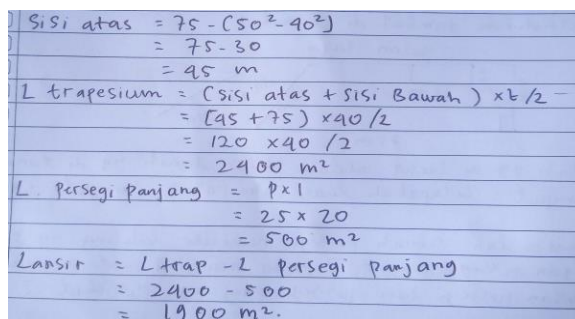 Sisi atas = 75 - (50² - 40²)
= 75 - 30
= 45 m
L trapesium = (sisi atas + sisi Bawah) x t /2
= (45 + 75) x 40 /2
= 120 x 40 /2
= 2400 m²
L persegi panjang = p x l
= 25 x 20
= 500 m²
Lansir = L trap - L persegi panjang
= 2400 - 500
= 1900 m².